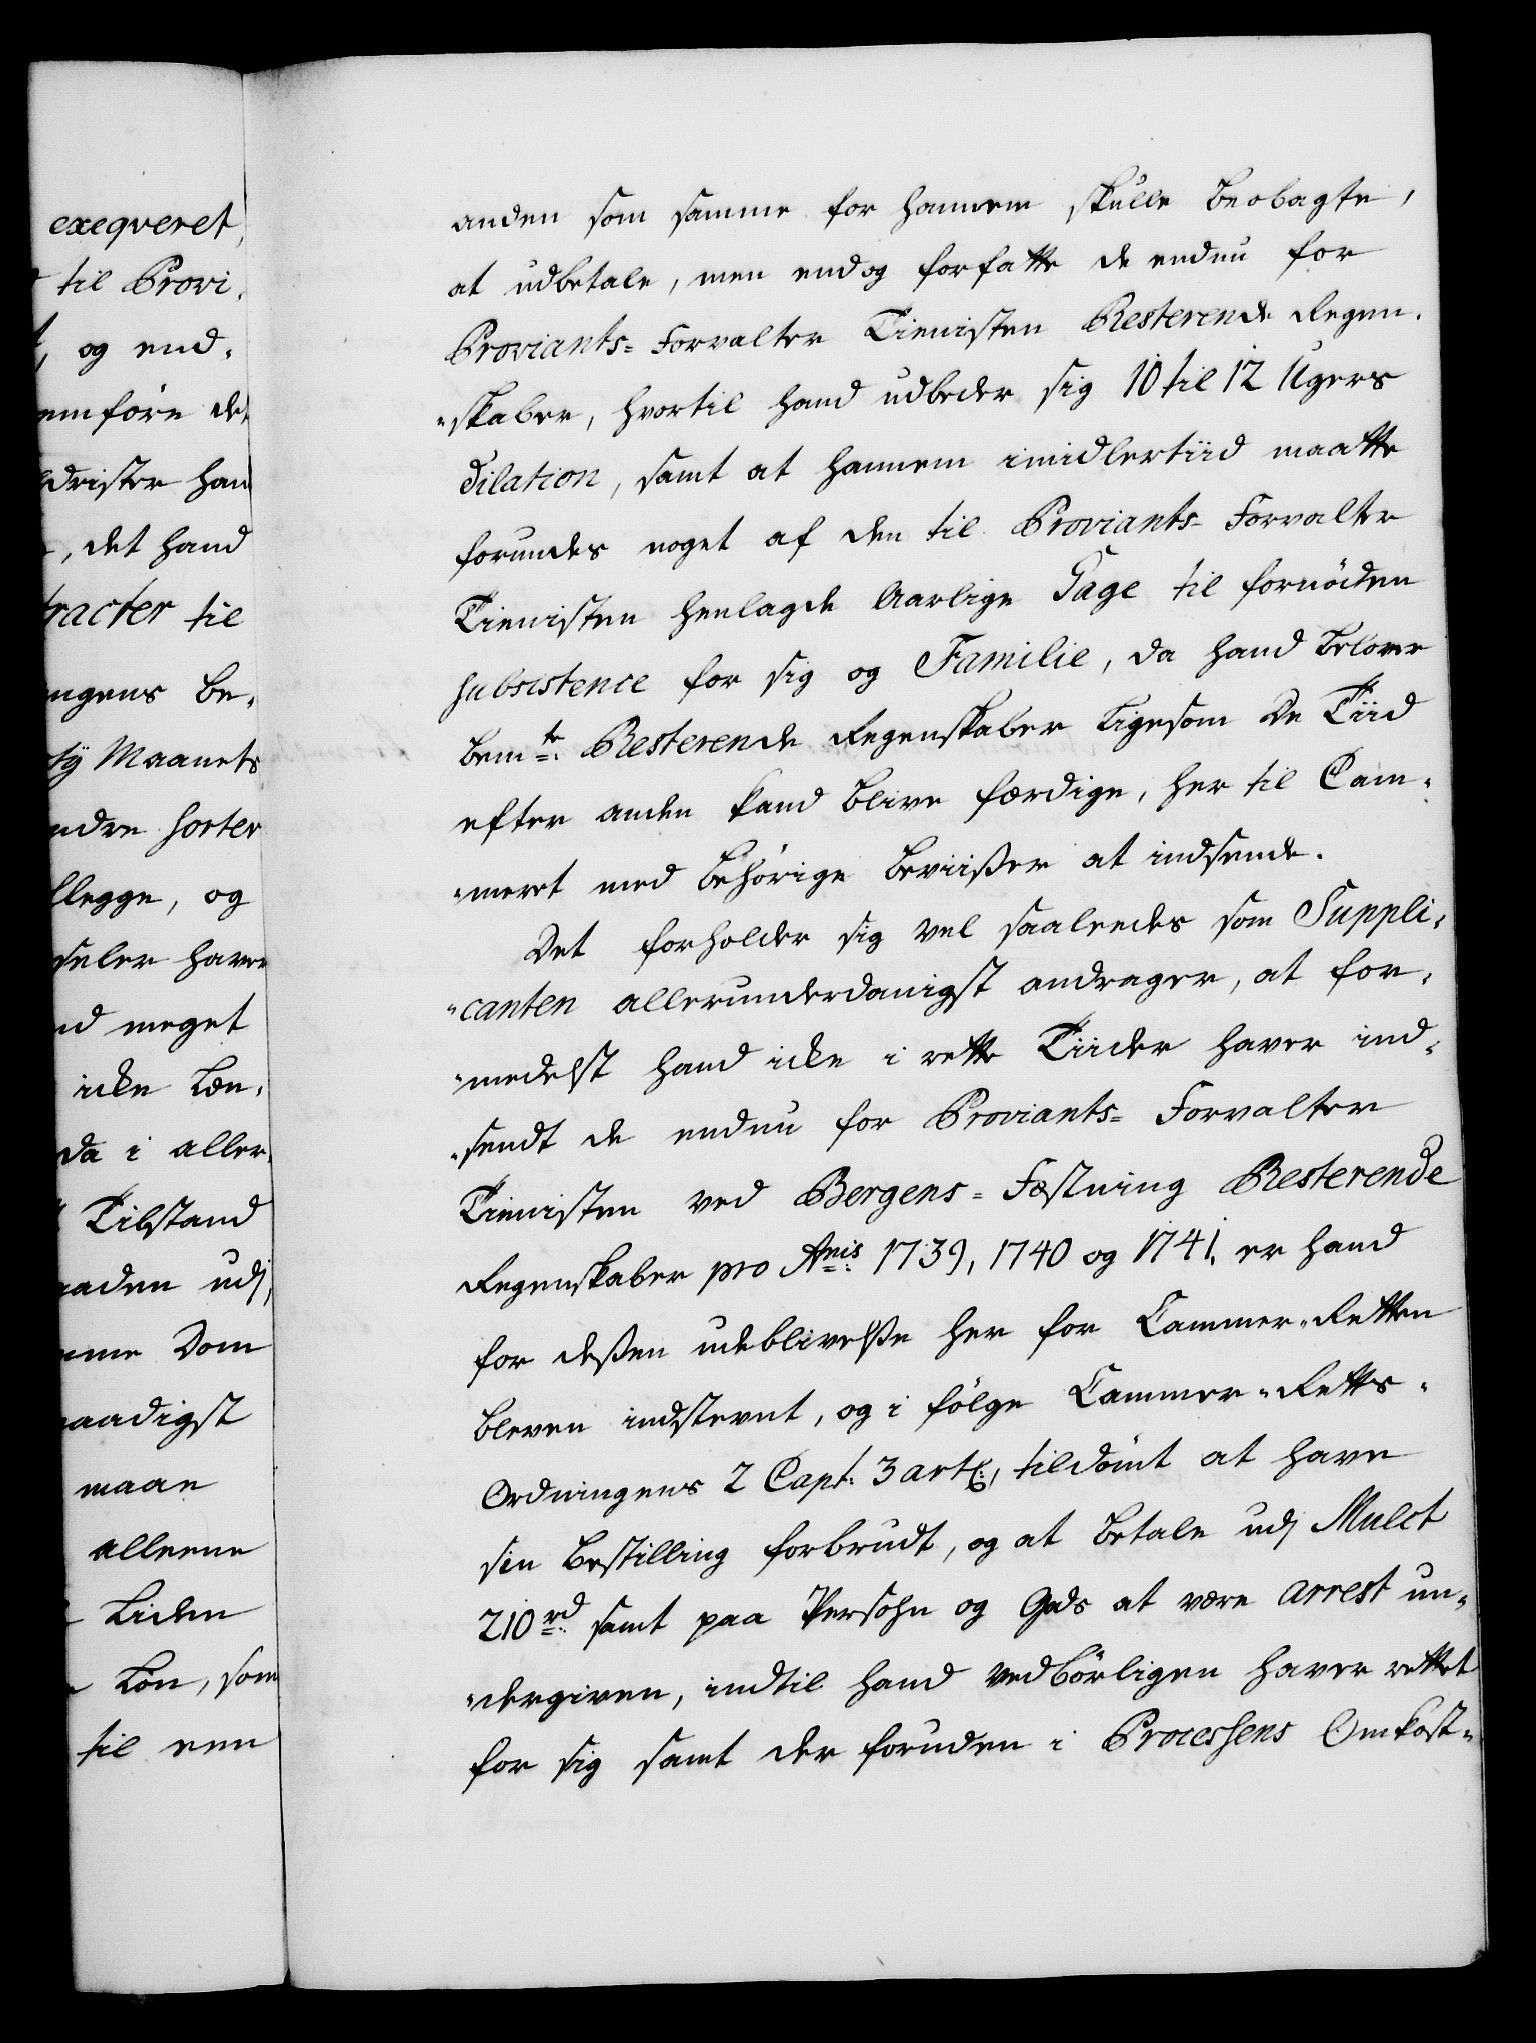 exeqveret,
til Provi-
og end-
emføre det
drister han
, det hand
tracter til
ngens be-
ty Maanets
ndre sorter
llegge, og
seler haver
nd meget
icke Len-
da i aller-
Tilstand
aaden udj,
mme Dom
naadigst
maae
alleene
Liden
Løn, som
til een
anden som samme for hannem skulle beobagte,
at udbetale, men endog forfatte de endnu for
Proviants= Forvalter Tienisten Resterende Regen-
-skaber, hvortil hand udbeder sig 10 til 12 Ugers
Dilation, samt at hannem imidlertiid maatte
forundes noget af den til Proviants- Forvalter
Tienisten henlagde Aarlige Gage til fornöden
subsistence for sig og Familie, da hand belover
bemte Resterende Regenskaber ligesom De Tiid
efter anden kand blive færdige, her til Cam-
-meret med behörige beviißer at indsende.
Det forholder sig vel saaleedes som Suppli-
-canten allerunderdanigst andrager, at for-
-medelst hand icke i rette Tiider haver ind-
-sendt de endnu for Proviants= Forvalter
Tienisten ved Bergens= Fæstning Resterende
Regenskaber pro Anis 1739, 1740 og 1741, er hand
for deßen udeblivelße her for Cammer-Retten
bleven indstevnt, og i følge Cammer-Retts-
Ordningens 2 Capt: 3 artl:, tildömt at have
sin bestilling forbrudt, og at betale udj Mulct
210 rd samt paa Persohn og Gods at være arrest un-
-dergiven, indtil hand vedbörligen haver rettet
for sig samt der foruden i Processens Omkost-